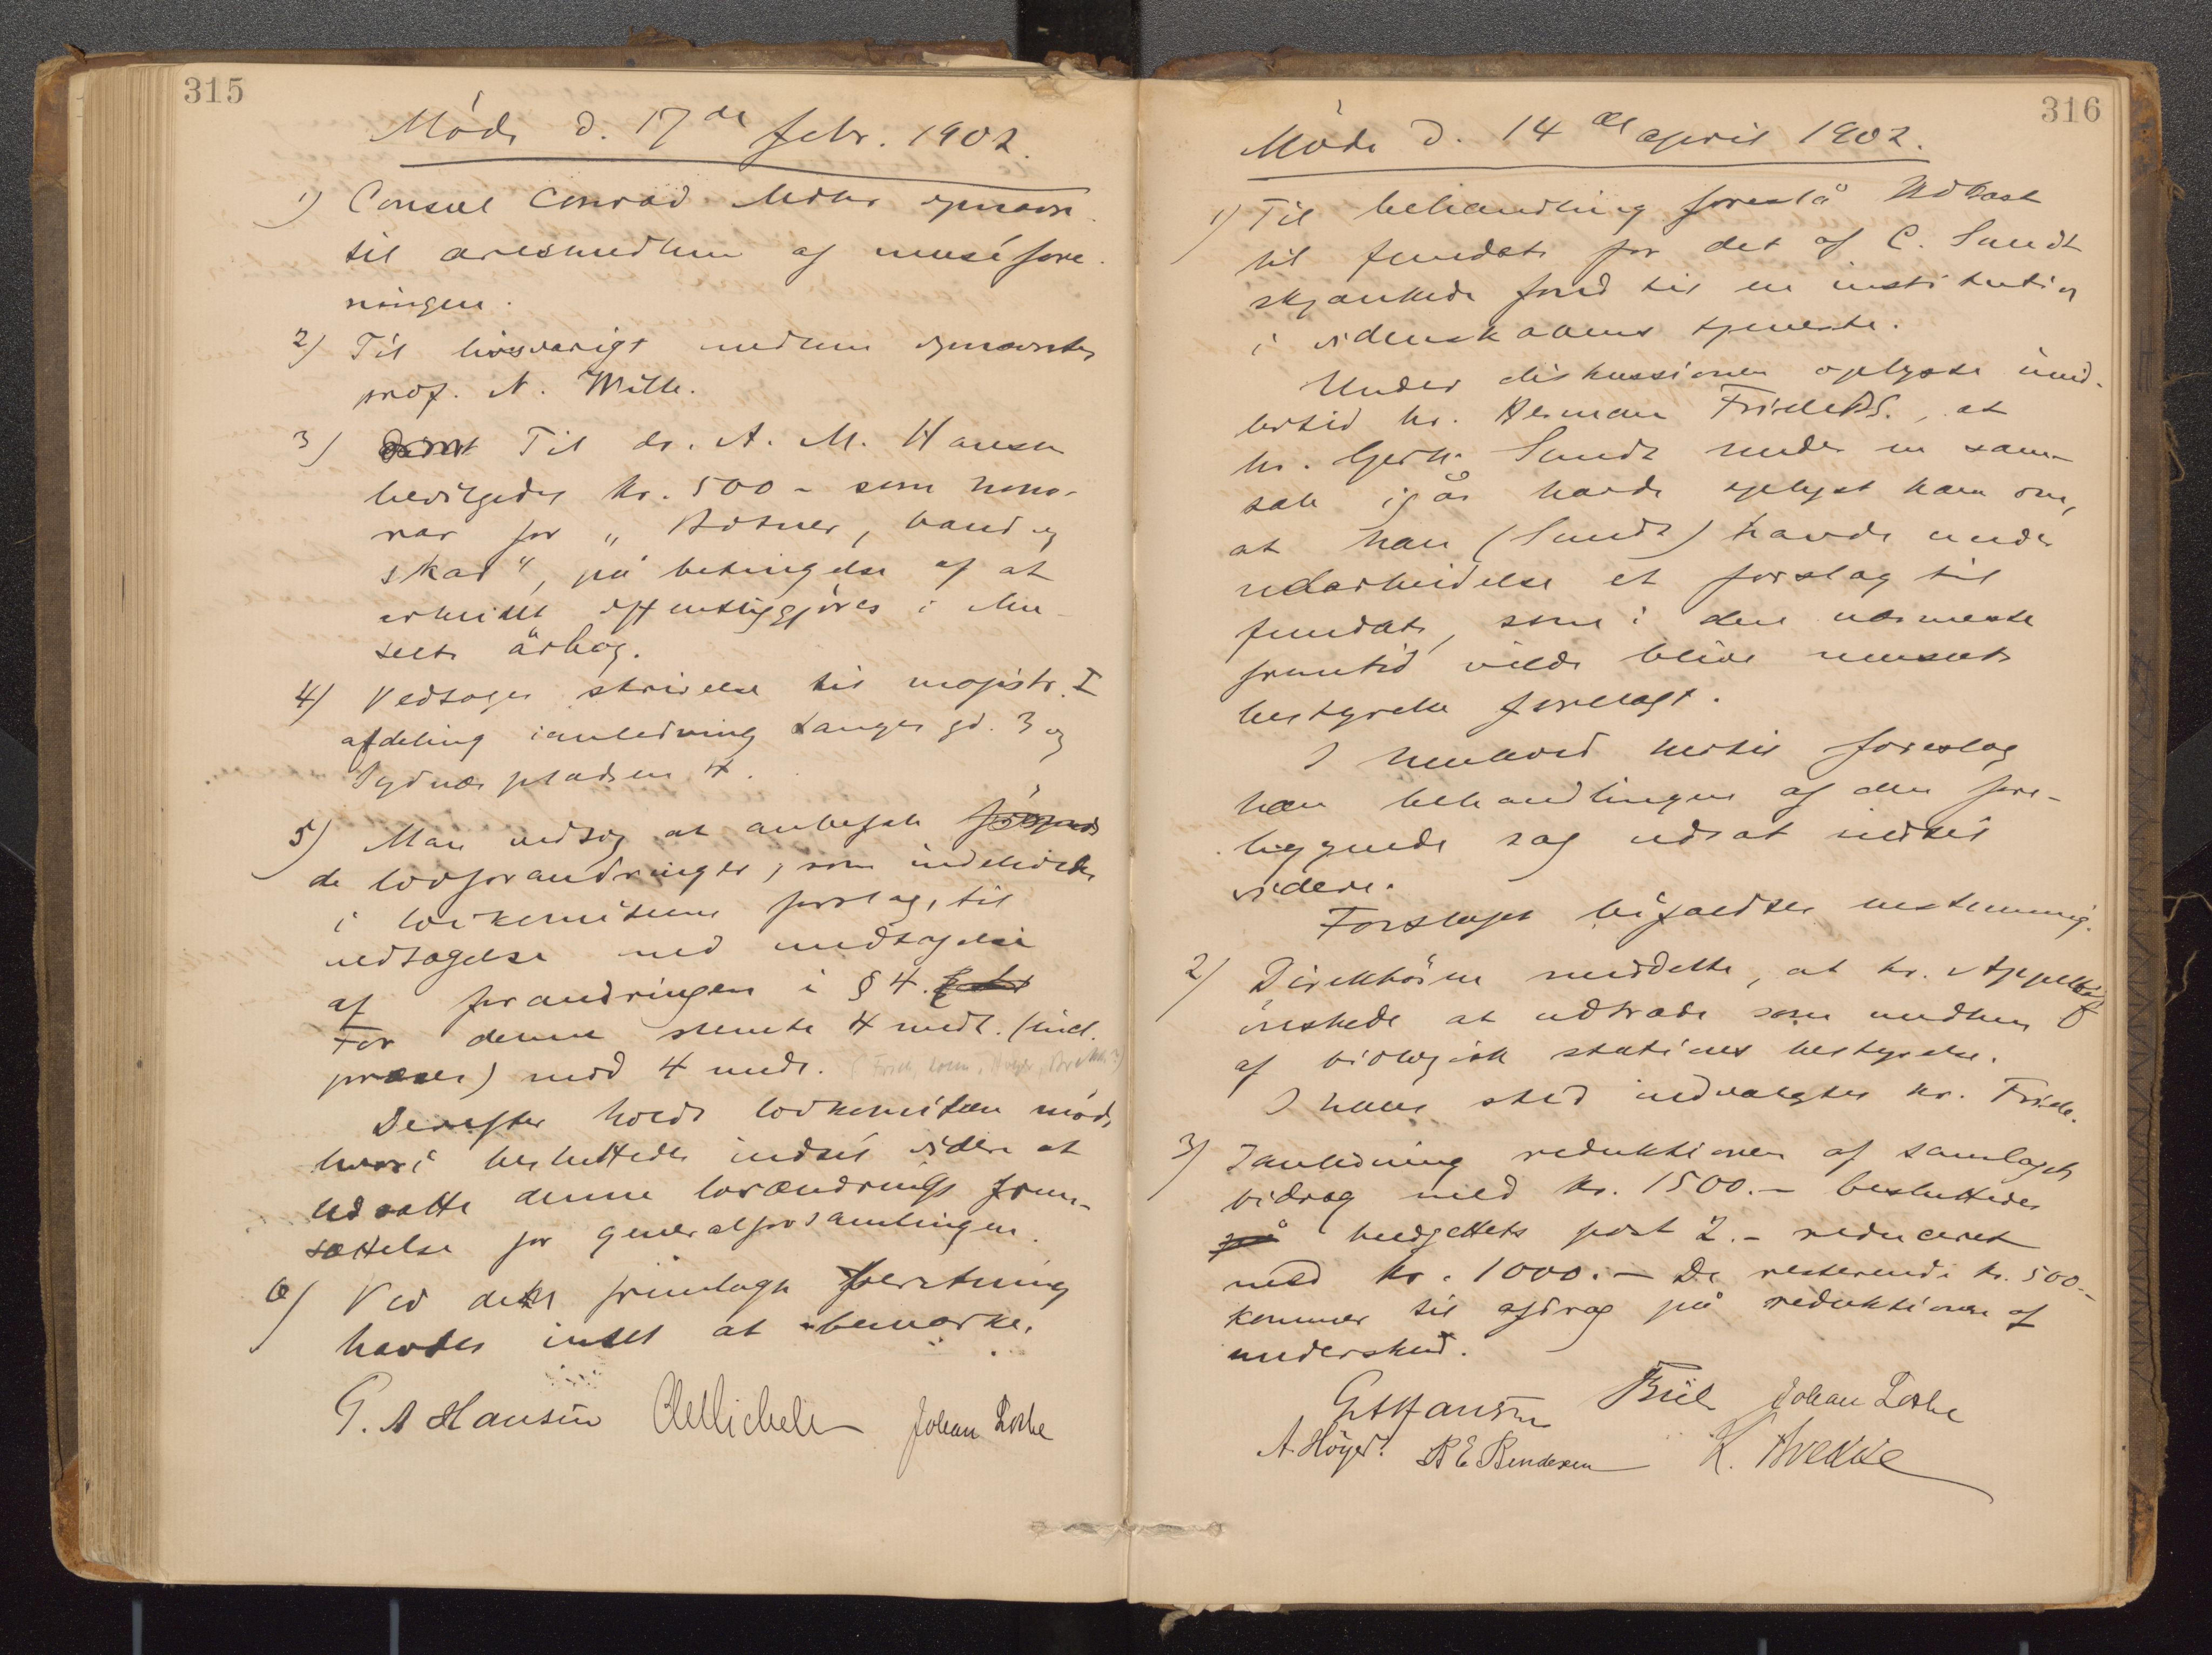 315
Möde d. 17de febr. 1902.
1) Consul Conrad Mohr opnævn.
til æresmedlem af muséfore-
ningen.
2) Til livsvarigt medlem opnævntes
prof. N. Wille.
3) Til dr. A. M. Hansen
bevilgedes kr. 500 – som hono-
rar for „Botner, band og
skar“, på betingelse af at
arbeidet offentliggjöres i Mu-
seets årbog.
4) Vedtoges skrivelse til magistr. I
afdeling ianledning Langes gd. 3 og
Sydnæspladsen 4.
5) Man vedtog at anbefale
de lovforandringer, som indeholdes
i lovkomiteens forslag, til
vedtagelse med undtagelse
af forandringen i § 4.
For denne stemte 4 medl. (incl.
præses) mod 4 medl.
Derefter holdt lovkomiteen möde
hvori besluttedes indtil videre at
udsætte denne lovændrings frem-
sættelse for generalforsamlingen.
6) Ved det fremlagte forretning
havdes intet at bemærke.
G. A Hansen Michelsen Johan Lothe
316
Möde d. 14de april 1902.
1) Til behandling forelå Udkast
til fundats for det af C. Sundt
skjænkede fond til en institution
i videnskabens tjeneste.
Under diskussionen oplyste imid-
lertid hr. Herman Friele, at
hr. Gerh. Sundt under en sam-
tale igår havde oplyst ham om,
at han (Sundt) havde under
udarbeidelse et forslag til
fundats, som i den nærmeste
fremtid vilde blive museets
bestyrelse forelagt.
I henhold hertil foreslog
han behandlingen af den fore-
liggende sag udsat indtil
videre.
Forslaget bifaldtes enstemmig.
2) Direktören meddelte, at hr. Appellöf
önskede at udtræde som medlem
af biologisk stations bestyrelse.
I hans sted indvalgtes hr. Friele.
3) Ianledning reduktionen af samlagets
bidrag med kr. 1500.– besluttedes
budgettets post 2.– reduceret
med kr. 1000.– De resterende kr. 500.–
kommer til afdrag på reduktionen af
underskud.
G A Hansen Friele Johan Lothe
A. Höyer. B E Bendixen K. Brekke